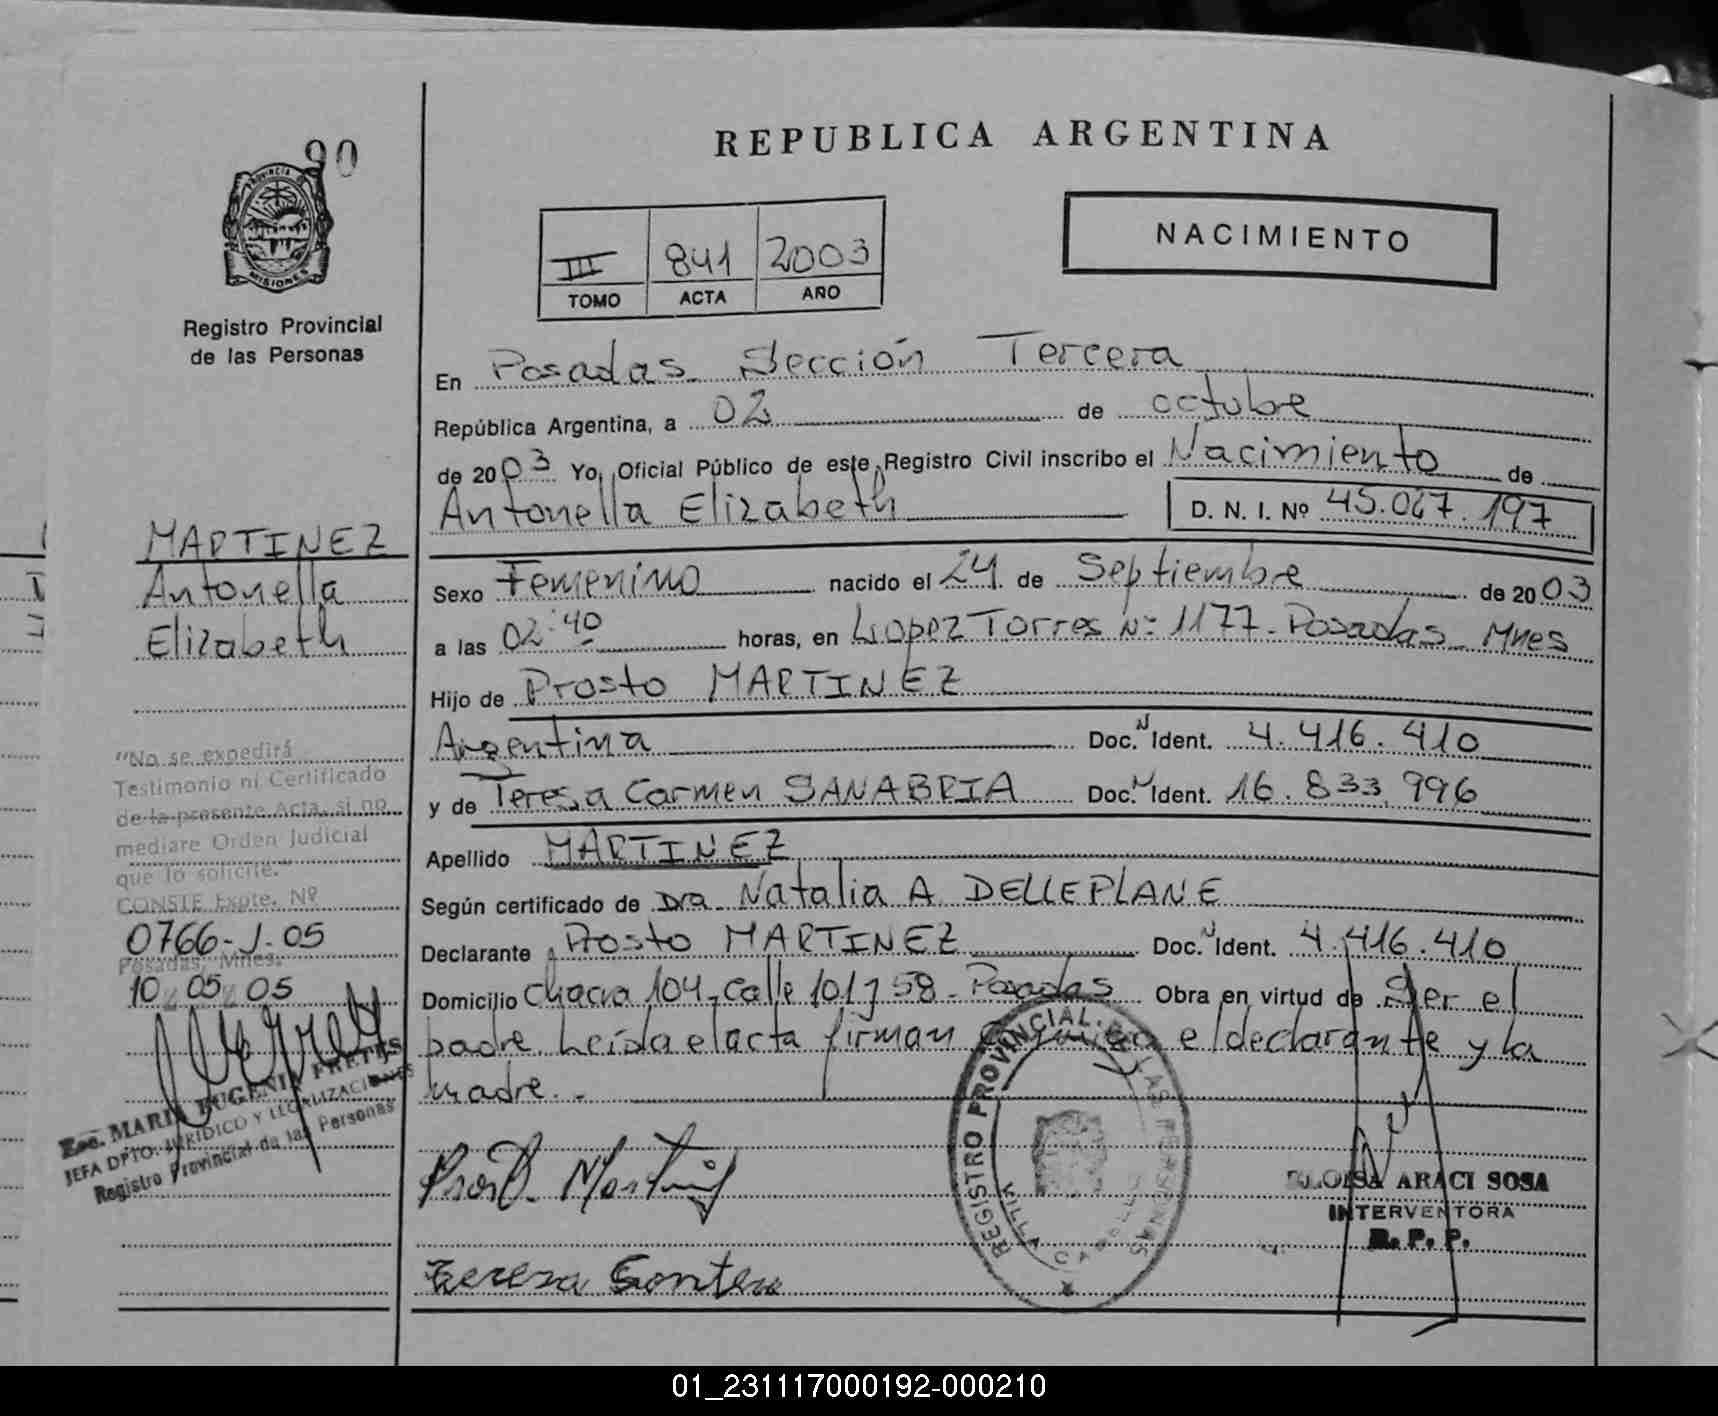 90
PROVINCIA DE
MISIONES
Registro Provincial
de las Personas
REPUBLICA ARGENTINA
III 841 2003
TOMO ACTA AÑO
NACIMIENTO
En Posadas Sección Tercera
República Argentina, a 02 de octubre
de 2003 Yo, Oficial Público de este Registro Civil inscribo el Nacimiento de
Antonella Elizabeth D. N. I. Nº 45.067.197
Sexo Femenino nacido el 24 de Septiembre de 2003
a las 02:40 horas, en López Torres Nº 1177 - Posadas - Mnes
Hijo de Prosto MARTINEZ
Argentina Doc. N Ident. 4.416.410
y de Teresa Carmen SANABRIA Doc. N Ident. 16.833.996
Apellido MARTINEZ
Según certificado de Dra. Natalia A. DELLEPLANE
Declarante Prosto MARTINEZ Doc. N Ident. 4.416.410
Domicilio Chacra 104, calle 101 y 58 - Posadas Obra en virtud de Ser el
padre. Leída el acta firman conmigo el declarante y la
madre.
MARTINEZ
Antonella
Elizabeth
"No se expedirá
Testimonio ni Certificado
de la presente Acta, si no
mediare Orden Judicial
que lo solicite."
CONSTE Expte. Nº
0766-J-05
Posadas, Mnes.
10 05 05
Esc. MARIA EUGENIA FRETES
JEFA DPTO. JURIDICO Y LEGALIZACIONES
Registro Provincial de las Personas
REGISTRO PROVINCIAL DE LAS PERSONAS
VILLA CABELLO
ELOISA ARACI SOSA
INTERVENTORA
R. P. P.
01_231117000192-000210